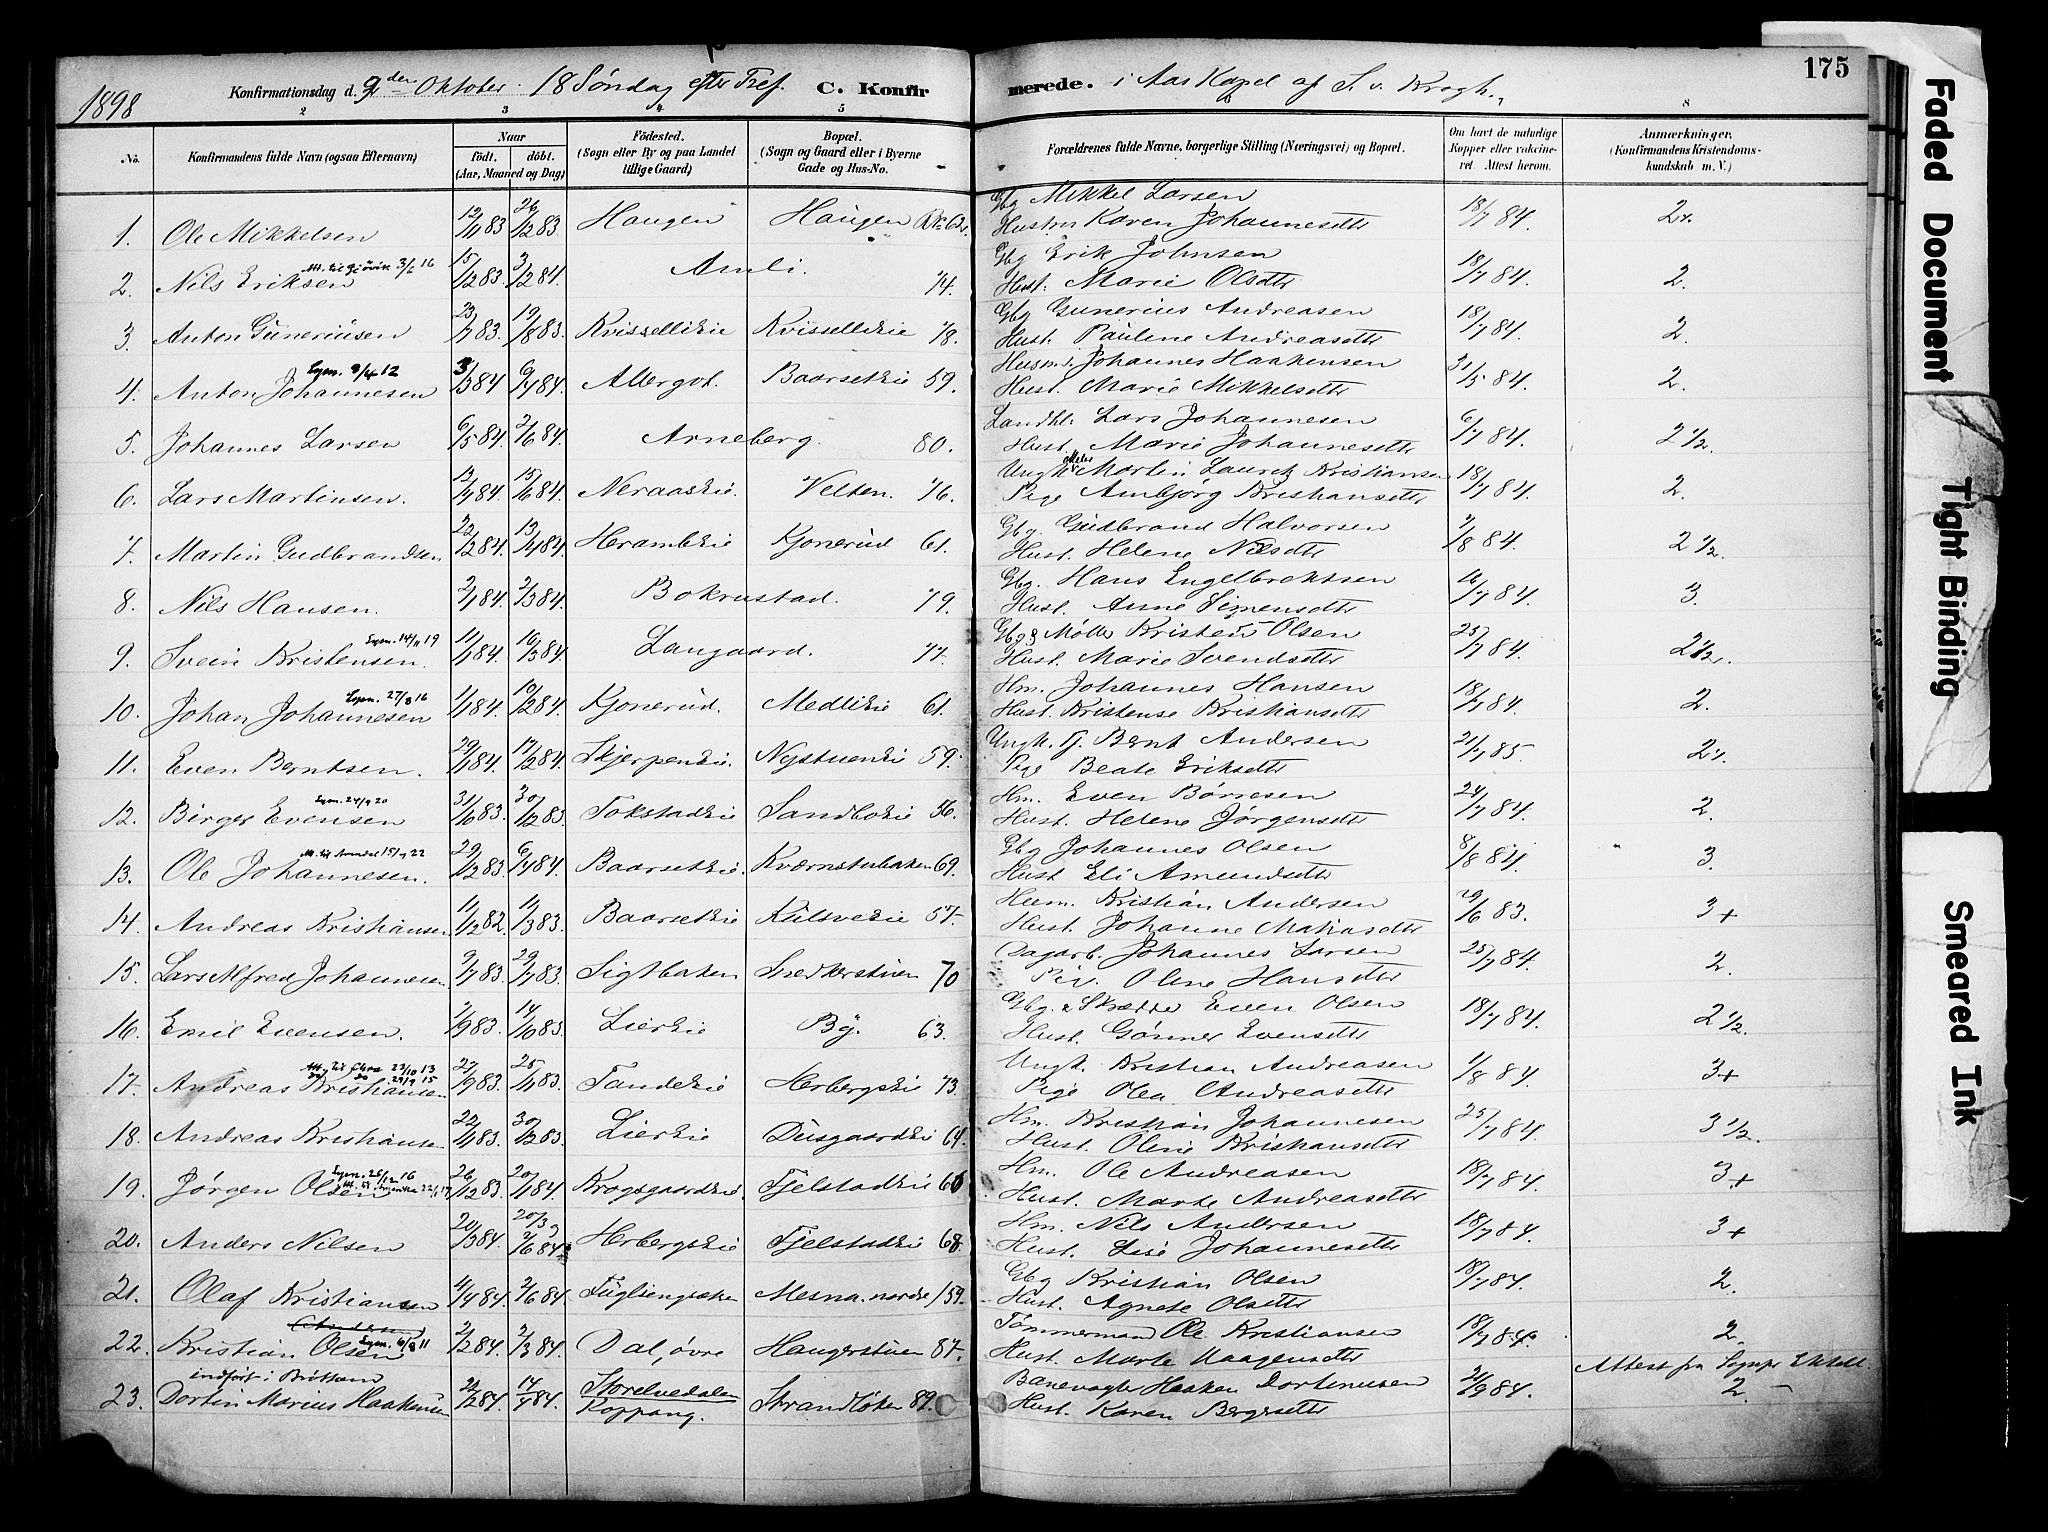 175
1898 Konfirmationsdag d. 9den Oktober. 18 Søndag efter Tref. C. Konfirmerede. i Aas Kapel af S. v. Krogh.
2 3 4 5 8
No. Konfirmandens fulde Navn (ogsaa Efternavn) Naar födt. döbt. (Aar, Maaned og Dag) Födested. (Sogn eller By og paa Landet tillige Gaard) Bopæl. (Sogn og Gaard eller i Byerne Gade og Hus-No. Forældrenes fulde Navne, borgerlige Stilling (Næringsvei) og Bopæl. Om havt de naturlige Kopper eller vakcineret. Attest herom. Anmærkninger. (Konfirmandens Kristendomskundskab m. V.)
1. Ole Mikkelsen 12/11 83 26/12 83 Haugen Haugen Gbg Mikkel Larsen Hustru Karen Johannesdtr 18/7 84.
2. Nils Eriksen 15/12 83 3/2 84. Amli. 74. Gbg Erik Johnsen Hust. Marie Olsdtr 18/7 84. 2.
3. Anton Guneriusen 23/7 83. 19/8 83. Kvisselleie Kvisselleie 78. Gbg Gunerius Andreasen Hust. Pauline Andreasdtr 18/7 84. 2.
4. Anton Johannesen 84 6/4 84. Allergot. Baarseteie 59. Husm. Johannes Haakensen Hust. Marie Mikkelsdtr 31/5 84. 2.
5. Johannes Larsen 6/5 84. 2/6 84. Arneberg. 80. Landh. Lars Johannesen Hust. Marie Johannesdtr 6/7 84. 2 1/2.
6. Lars Martinsen. 84. 15/6 84. Neraaseie. Velten. 76. Ungk. Martin Lauritz Kristiansen Pige Ambjörg Kristiansdtr 18/7 84. 2.
7. Martin Gudbrandsen 22/2 84. 13/4 84. Herambeie Kjonerud 61. Gbg Gudbrand Halvorsen Hust. Helene Nilsdtr 84. 2 1/2.
8. Nils Hansen. 84. 2/3 84. Bokrustad. 79. Gbg. Hans Engelbrektsen Hust. Anne Simensdtr 16/7 84. 3.
9. Svein Kristensen. 11/1 84. 16/3 84. Langaard. 77. Gbg & Møller Kristen Olsen Hust. Marie Svendsdtr 25/7 84. 2 1/2.
10. Johan Johannesen 1/1 84. 10/2 84. Kjonerud. Medlieie 61. Hm. Johannes Hansen Hust. Kristense Kristiansdtr 18/7 84. 2.
11. Even Berntsen. 29/1 84. 17/2 84. Skjerpeneie. Nystueneie 59. Ungk. Tj. Bernt Andersen Pige Beate Eriksdtr 21/7 85.
12. Birger Evensen 31/10 83. 30/12 83. Tokstadeie Sandbokeie 56. Hm. Even Børresen Hust. Helene Jørgensdtr 24/7 84. 2.
13. Ole Johannesen. 29/12 83. 6/4 84. Baarseteie. Kværnstubaken 69. Gbg Johannes Olsen Hust. Eli Amundsdtr 8/8 84. 3.
14. Andreas Kristiansen 11/12 82. 83. Baarseteie Kulsveeie 57. Husm. Kristian Andersen Hust. Johanne Matiasdtr 29/6 83. 3+
15. Lars Alfred Johannesen 9/7 83. 29/7 83. Sigtbaken Snedkerstuen 70 Dagarb. Johannes Larsen Pige. Oline Hansdtr 25/7 84. 2.
16. Emil Evensen. 83. 14/10 83. Liereie By. 63. Gbg. & Skræder Even Olsen Hust. Gønner Evensdtr 18/7 84. 2 1/2.
17. Andreas Kristiansen 83. 25/11 83. Tandeeie Herbergseie 73. Ungk. Kristian Andreasen Pige Olea Andreasdtr 1/8 84. 3+
18. Andreas Kristiansen 22/11 83. 30/12 83. Liereie Dusgaardeie 64. Hm. Kristian Johannesen Hust. Oline Kristiansdtr 25/7 84. 3 1/2.
19. Jørgen Olsen 26/12 83. 20/1 84. Krogsgaardeie. Fjelstadeie 60 Hm. Ole Andreasen Hust. Marte Andreasdtr 18/7 84. 3+
20. Anders Nilsen 20/3 84. 2/6 84. Herbergseie Fjelstadeie 68. Hm. Nils Andersen Hust. Lise Johannesdtr 18/7 84. 3+
21. Olaf Kristiansen 4/4 84. 2/6 84. Fuglsengeie Mesna. nordre 159. Gbg Kristian Olsen Hust. Agnete Olsdtr 18/7 84. 2.
22. Kristian Olsen 84. 2/3 84. Dal, øvre Haugerstuen 87. Tømmermand Ole Kristiansen Hust. Marte Haagensdtr 18/7 84. 2.
indført i Brøttum
23. Dortin Marius Haakensen 84. 14/4 84. Storelvedalen Koppang. Strandløken 89. Banevogter Haaken Dortinusen Hust. Karen Bergersdtr 21/9 84. Attest fra 2
Faded Document
Tight Binding
Smeared Ink